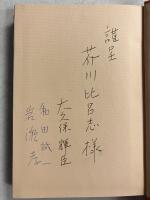 謹呈
芥川比呂志様
大久保輝臣
和田誠一
岩瀬孝